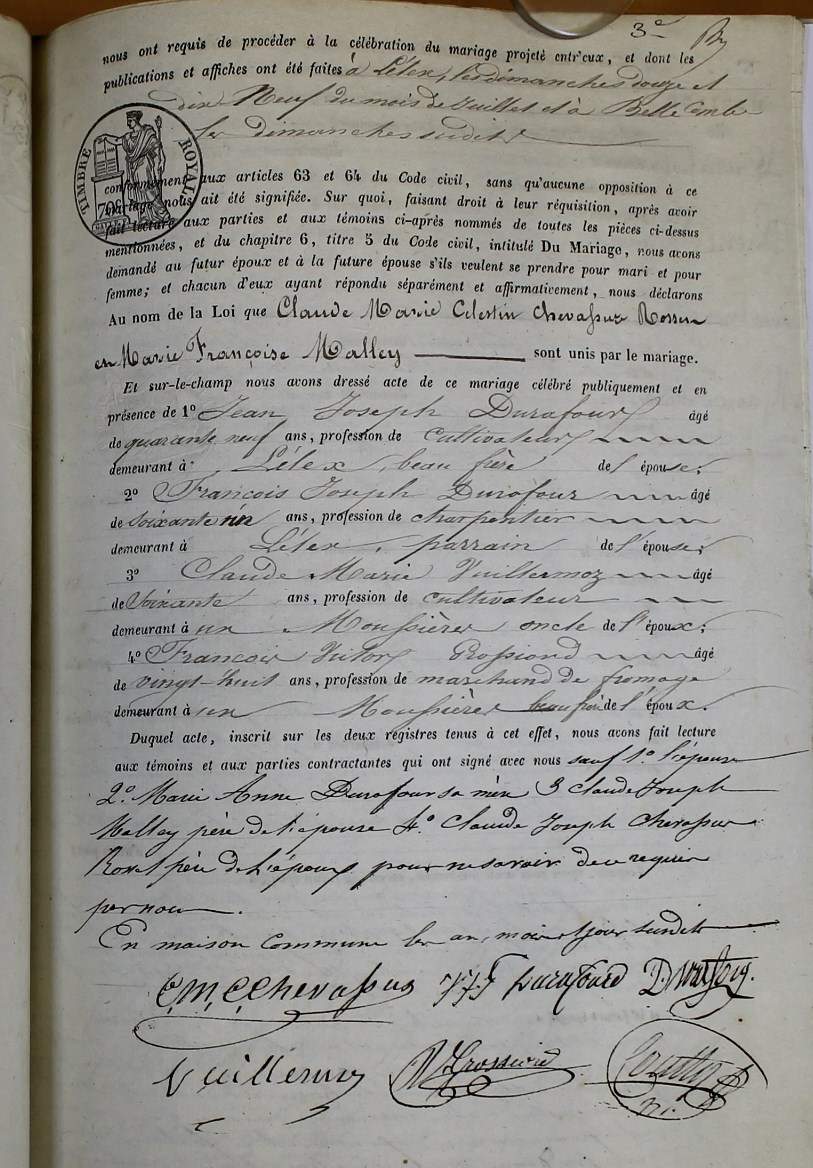 3e
nous ont requis de procéder à la célébration du mariage projeté entr'eux, et dont les
publications et affiches ont été faites à Lélex, les dimanches douze et
dix Neuf du mois de Juillet et à Belle Combe
les dimanches susdits
TIMBRE ROYAL
70c
conformément aux articles 63 et 64 du Code civil, sans qu'aucune opposition à ce
mariage nous ait été signifiée. Sur quoi, faisant droit à leur réquisition, après avoir
fait lecture aux parties et aux témoins ci-après nommés de toutes les pièces ci-dessus
mentionnées, et du chapitre 6, titre 5 du Code civil, intitulé Du Mariage, nous avons
demandé au futur époux et à la future épouse s'ils veulent se prendre pour mari et pour
femme; et chacun d'eux ayant répondu séparément et affirmativement, nous déclarons
Au nom de la Loi que Claude Marie Celestin Chevassus Rosset
et Marie Françoise Malley sont unis par le mariage.
Et sur-le-champ nous avons dressé acte de ce mariage célébré publiquement et en
présence de 1o Jean Joseph Durafour âgé
de quarante neuf ans, profession de cultivateur
demeurant à Lélex, beau frère de l'épouse;
2o François Joseph Durafour âgé
de soixante ans, profession de charpentier
demeurant à Lélex, parrain de l'épouse;
3o Claude Marie Vuillermoz âgé
de soixante ans, profession de cultivateur
demeurant à Moussières oncle de l'époux;
4o François Victor Grossiord âgé
de vingt-huit ans, profession de marchand de fromage
demeurant à Moussières beau frère de l'époux.
Duquel acte, inscrit sur les deux registres tenus à cet effet, nous avons fait lecture
aux témoins et aux parties contractantes qui ont signé avec nous sauf 1o l'épouse
2o Marie Anne Durafour sa mère 3 Claude Joseph
Malley père de l'épouse 4o Claude Joseph Chevassus
Rosset père de l'époux pour ne savoir de ce requis
par nous.
En maison Commune les an, mois et jour susdits
C, M, C Chevassus JJ Durafourd Durafour
Vuillermoz VGrossiord